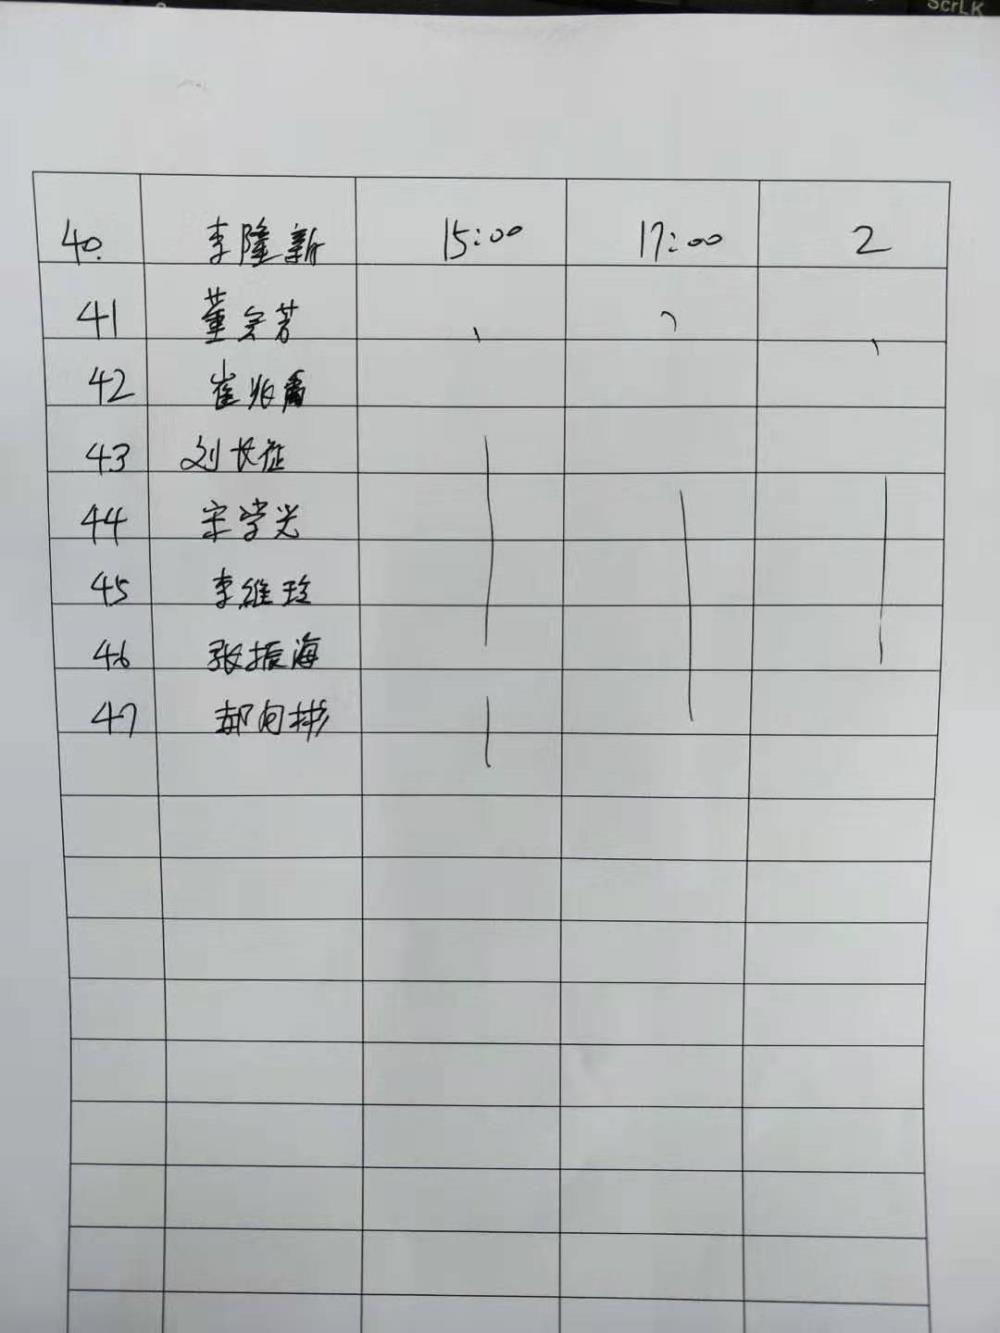 ScrLK
40. 李隆新 15:00 17:00 2
41 董宗芳
42 崔兆
43 刘长征
44 宋学光
45 李维玲
46 张振海
47 郝向彬